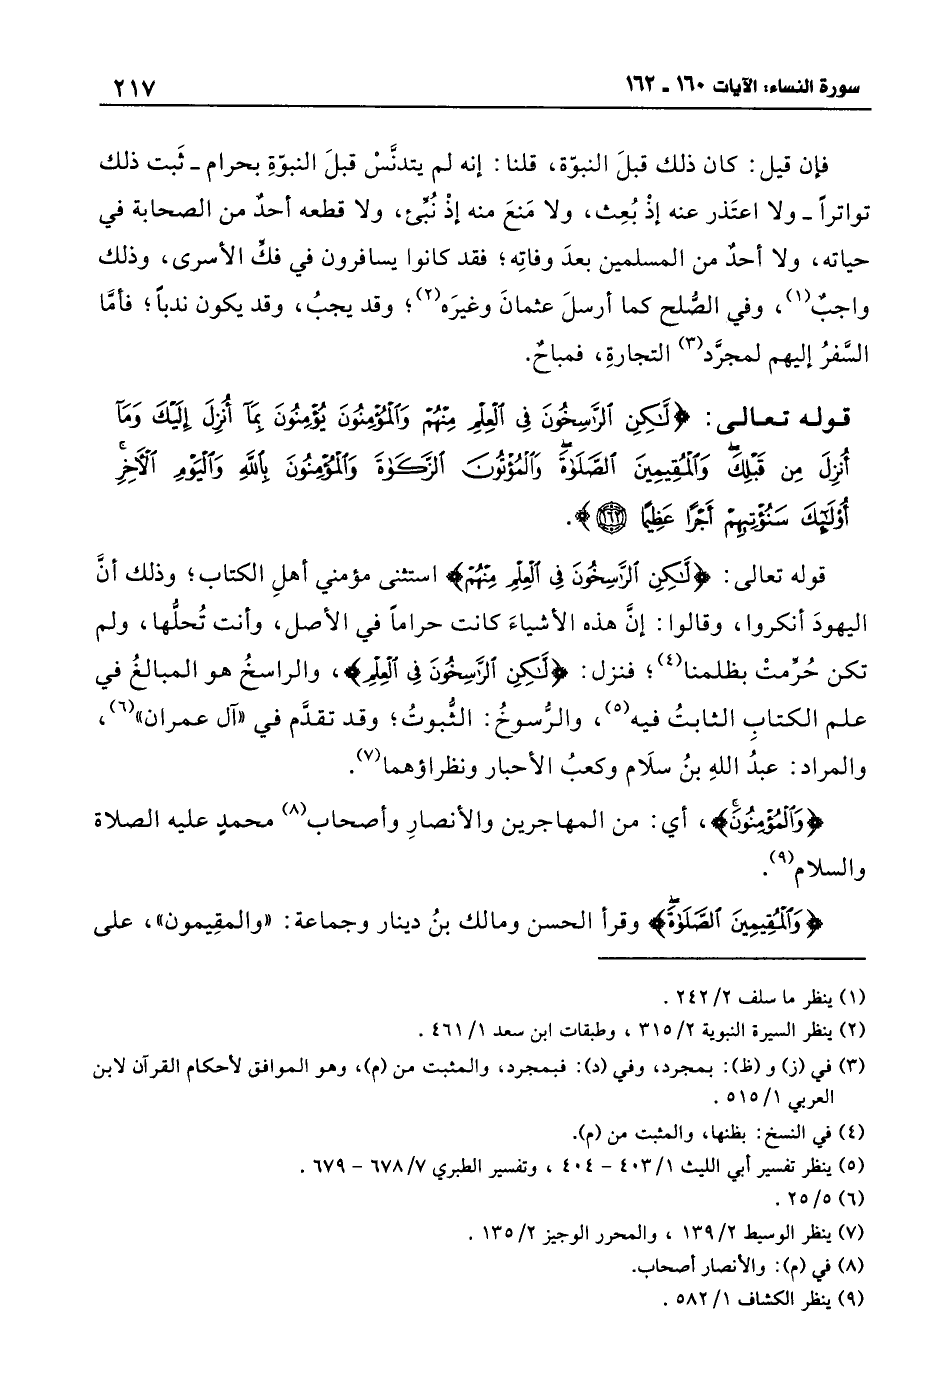 سورة النساء: الآيات ١٦٠ ـ ١٦٢
٢١٧
فإن قيل: كان ذلك قبلَ النبوّة، قلنا: إنه لم يتدنَّسْ قبلَ النبوّةِ بحرام ـ ثَبت ذلك
تواتراً ـ ولا اعتَذر عنه إذْ بُعِث، ولا مَنعَ منه إذْ نُبِّئ، ولا قطعه أحدٌ من الصحابة في
حياته، ولا أحدٌ من المسلمين بعدَ وفاتِه؛ فقد كانوا يسافرون في فكِّ الأسرى، وذلك
واجبٌ(١)، وفي الصُّلح كما أرسلَ عثمانَ وغيرَه(٢)؛ وقد يجبُ، وقد يكون ندباً؛ فأمَّا
السَّفرُ إليهم لمجرَّد(٣) التجارةِ، فمباحٌ.
قوله تعالى: ﴿لَّٰكِنِ ٱلرَّٰسِخُونَ فِى ٱلْعِلْمِ مِنْهُمْ وَٱلْمُؤْمِنُونَ يُؤْمِنُونَ بِمَآ أُنزِلَ إِلَيْكَ وَمَآ
أُنزِلَ مِن قَبْلِكَ ۖ وَٱلْمُقِيمِينَ ٱلصَّلَوٰةَ ۖ وَٱلْمُؤْتُونَ ٱلزَّكَوٰةَ وَٱلْمُؤْمِنُونَ بِٱللَّهِ وَٱلْيَوْمِ ٱلْآخِرِ ۚ
أُوْلَٰٓئِكَ سَنُؤْتِيهِمْ أَجْرًا عَظِيمًا ١٦٢﴾.
قوله تعالى: ﴿لَّٰكِنِ ٱلرَّٰسِخُونَ فِى ٱلْعِلْمِ مِنْهُمْ﴾ استثنى مؤمني أهلِ الكتاب؛ وذلك أنَّ
اليهودَ أنكروا، وقالوا: إنَّ هذه الأشياءَ كانت حراماً في الأصل، وأنت تُحلُّها، ولم
تكن حُرِّمتْ بظلمنا(٤)؛ فنزل: ﴿لَّٰكِنِ ٱلرَّٰسِخُونَ فِى ٱلْعِلْمِ﴾، والراسخُ هو المبالغُ في
علم الكتابِ الثابتُ فيه(٥)، والرُّسوخُ: الثُّبوتُ؛ وقد تقدَّم في «آل عمران»(٦)،
والمراد: عبدُ اللهِ بنُ سلَام وكعبُ الأحبار ونظراؤهما(٧).
﴿وَٱلْمُؤْمِنُونَ ۚ﴾، أي: من المهاجرين والأنصارِ وأصحاب(٨) محمدٍ عليه الصلاة
والسلام(٩).
﴿وَٱلْمُقِيمِينَ ٱلصَّلَوٰةَ ۖ﴾ وقرأ الحسن ومالك بنُ دينار وجماعة: «والمقِيمون»، على
(١) ينظر ما سلف ٢/ ٢٤٢ .
(٢) ينظر السيرة النبوية ٢/ ٣١٥ ، وطبقات ابن سعد ١/ ٤٦١ .
(٣) في (ز) و (ظ): بمجرد، وفي (د): فبمجرد، والمثبت من (م)، وهو الموافق لأحكام القرآن لابن
العربي ١/ ٥١٥ .
(٤) في النسخ: بظنها، والمثبت من (م).
(٥) ينظر تفسير أبي الليث ١/ ٤٠٣ - ٤٠٤ ، وتفسير الطبري ٧/ ٦٧٨ - ٦٧٩ .
(٦) ٥/ ٢٥ .
(٧) ينظر الوسيط ٢/ ١٣٩ ، والمحرر الوجيز ٢/ ١٣٥ .
(٨) في (م): والأنصار أصحاب.
(٩) ينظر الكشاف ١/ ٥٨٢ .